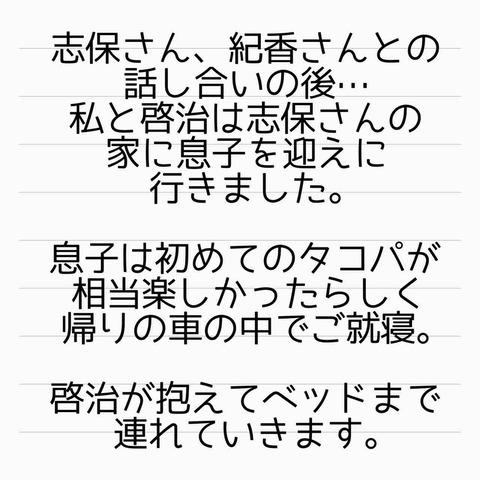 志保さん、紀香さんとの
話し合いの後…
私と啓治は志保さんの
家に息子を迎えに
行きました。
息子は初めてのタコパが
相当楽しかったらしく
帰りの車の中でご就寝。
啓治が抱えてベッドまで
連れていきます。